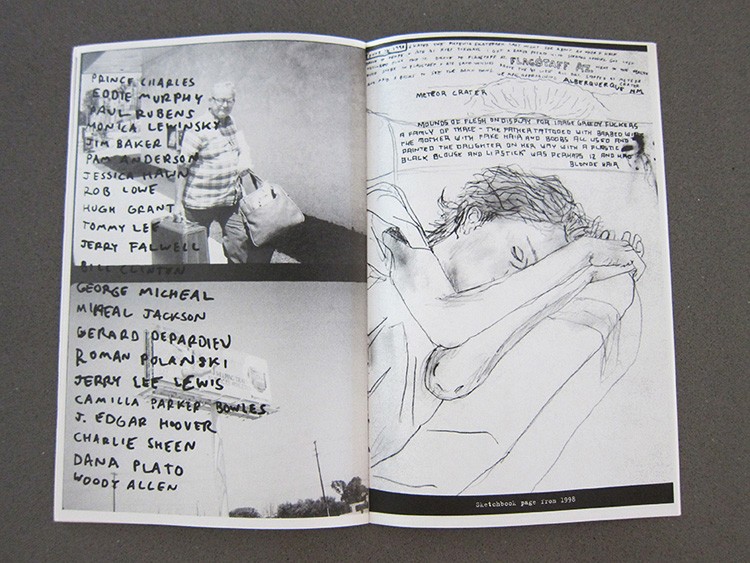 PRINCE CHARLES
EDDIE MURPHY
PAUL RUBENS
MONICA LEWINSKY
JIM BAKER
PAM ANDERSON
JESSICA HAHN
ROB LOWE
HUGH GRANT
TOMMY LEE
JERRY FALWELL
BILL CLINTON
GEORGE MICHEAL
JACKSON
GERARD DEPARDIEU
ROMAN POLANSKI
JERRY LEE LEWIS
CAMILLA PARKER BOWLES
J. EDGAR HOOVER
CHARLIE SHEEN
DANA PLATO
WOODY ALLEN
FLAGSTAFF AZ.
ALBERQUERQUE NM
METEOR CRATER
MOUNDS OF FLESH ON DISPLAY FOR IMAGE GREEDY FUCKERS
A FAMILY OF THREE - THE FATHER TATTOOED WITH BARBED
THE MOTHER WITH FAKE HAIR AND BOOBS ALL USED AND
PAINTED THE DAUGHTER ON HER WAY WITH A PLASTIC
BLACK BLOUSE AND LIPSTICK WAS PERHAPS 12 AND HAD
BLONDE HAIR
Sketchbook page from 1998